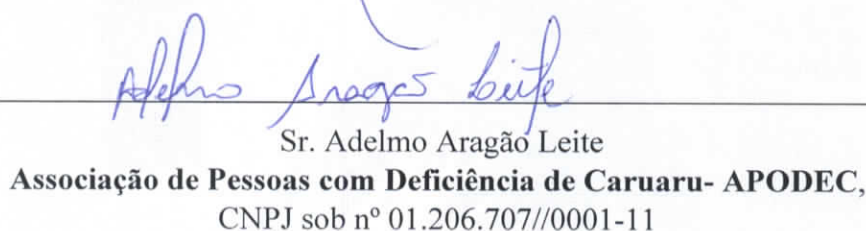 Adelmo Aragão Leite
Sr. Adelmo Aragão Leite
Associação de Pessoas com Deficiência de Caruaru- APODEC,
CNPJ sob nº 01.206.707//0001-11